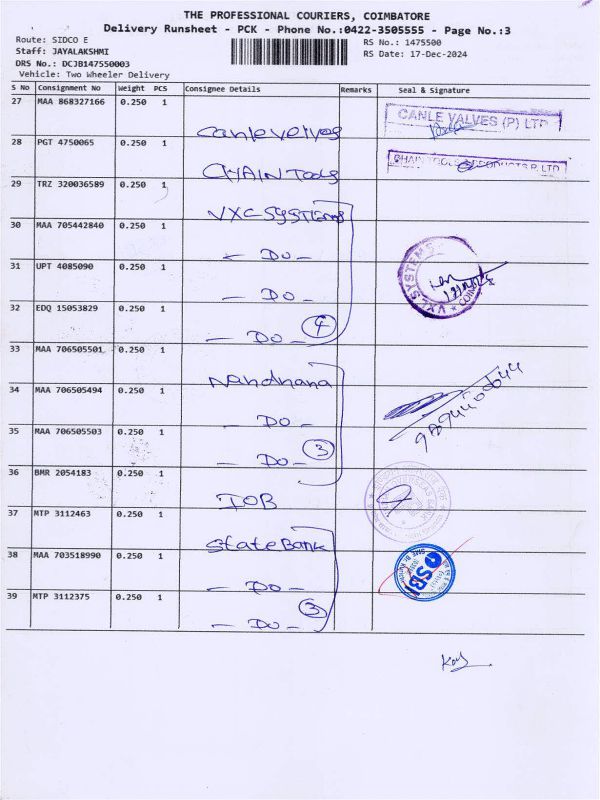 THE PROFESSIONAL COURIERS, COIMBATORE
Delivery Runsheet - PCK - Phone No.:0422-3505555 - Page No.:3
Route: SIDCO E
RS No.: 1475500
Staff: JAYALAKSHMI
RS Date: 17-Dec-2024
DRS No.: DCJB147550003
Vehicle: Two Wheeler Delivery
S No Consignment No Weight PCS Consignee Details Remarks Seal & Signature
27 MAA 868327166 0.250 1 CANLE VALVES (P) LTD
Canlevalves
28 PGT 4750065 0.250 1
CHAIN Tools
29 TRZ 320036589 0.250 1
VXL SYSTEMS
30 MAA 705442840 0.250 1
- DO -
VXL SYSTEMS
31 UPT 4085090 0.250 1
- DO -
32 EDQ 15053829 0.250 1
- DO - 4
33 MAA 706505501 0.250 1
Nandhana
34 MAA 706505494 0.250 1
- DO -
35 MAA 706505503 0.250 1
- DO - 3
36 BMR 2054183 0.250 1
IOB
37 MTP 3112463 0.250 1
State Bank
38 MAA 703518990 0.250 1
SBI
- DO -
39 MTP 3112375 0.250 1
- DO - 3